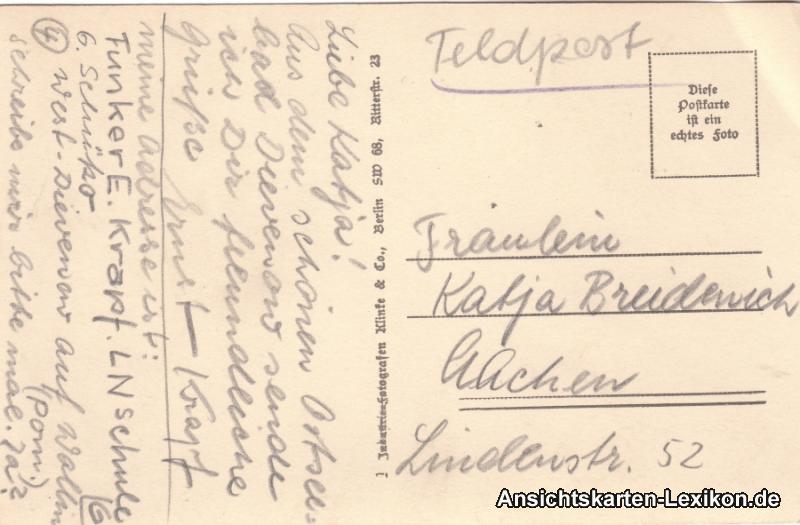 Liebe Katja!
Aus dem schönen Ostsee=
bad Dievenow sende
ich Dir freundliche
Grüße Ernst Krapf
meine Adresse ist:
Funker E. Krapf. LN Schule 6
6. Schüko
④ West-Dievenow auf Wollin
(Pom.)
schreibe mir bitte mal. Ja?
Industrie-Fotografen Klinke & Co., Berlin SW 68, Ritterstr. 23
Feldpost
Diese
Postkarte
ist ein
echtes Foto
Fräulein
Katja Breidenich
Aachen
Lindenstr. 52
Ansichtskarten-Lexikon.de